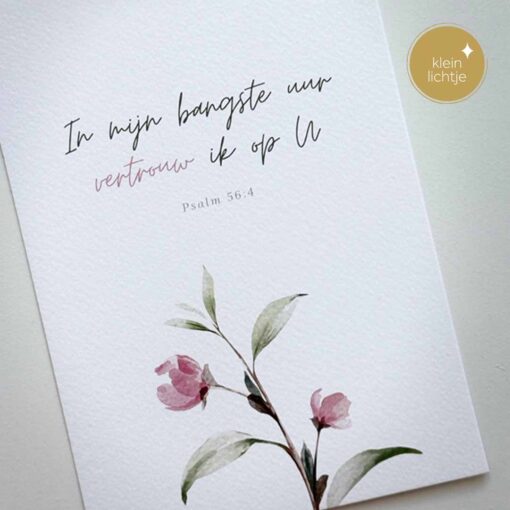 In mijn bangste uur
vertrouw ik op U
Psalm 56:4
klein
lichtje